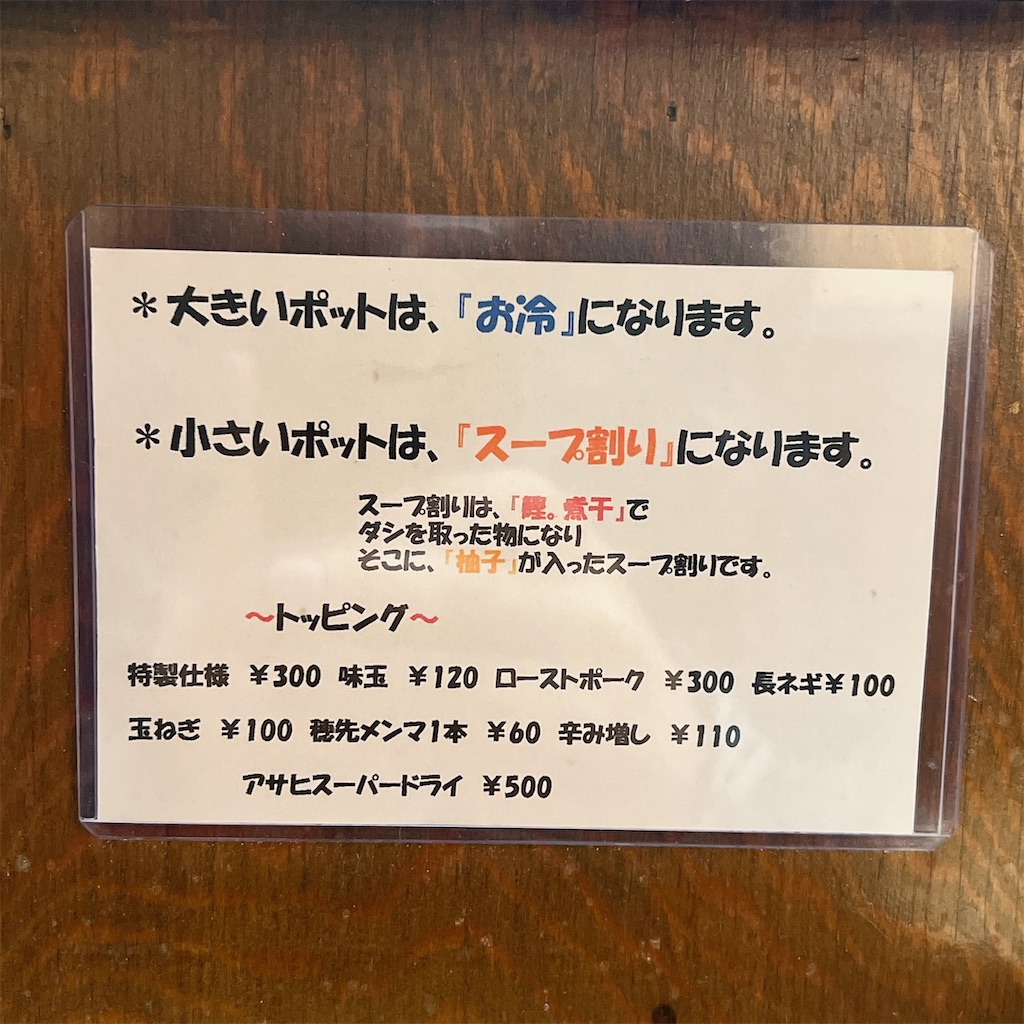 ＊大きいポットは、『お冷』になります。
＊小さいポットは、『スープ割り』になります。
スープ割りは、『鰹。煮干』で
ダシを取った物になり
そこに、『柚子』が入ったスープ割りです。
～トッピング～
特製仕様 ￥300 味玉 ￥120 ローストポーク ￥300 長ネギ￥100
玉ねぎ ￥100 穂先メンマ1本 ￥60 辛み増し ￥110
アサヒスーパードライ ￥500